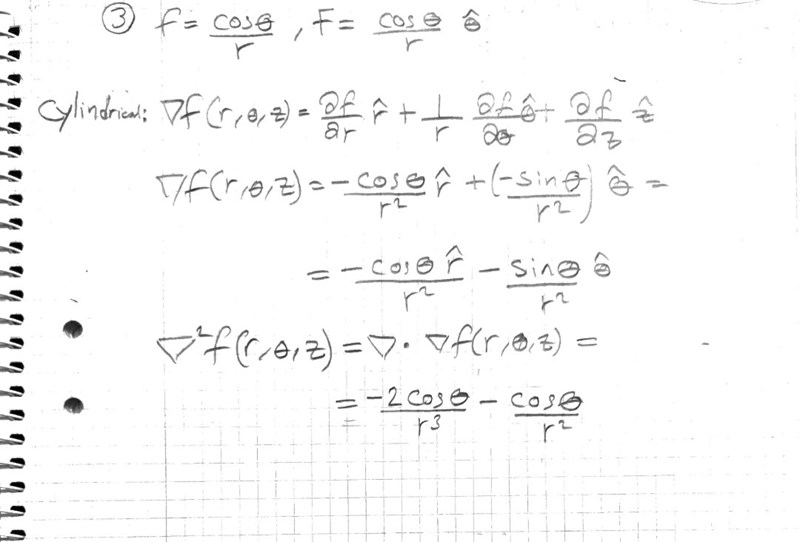 ③ f = cosθ/r , F = cosθ/r θ̂
Cylindrical: ∇f(r,θ,z) = ∂f/∂r r̂ + 1/r ∂f/∂θ θ̂ + ∂f/∂z ẑ
∇f(r,θ,z) = -cosθ/r² r̂ + (-sinθ/r²) θ̂ =
= -cosθ r̂/r² - sinθ/r² θ̂
∇²f(r,θ,z) = ∇·∇f(r,θ,z) =
= -2cosθ/r³ - cosθ/r²